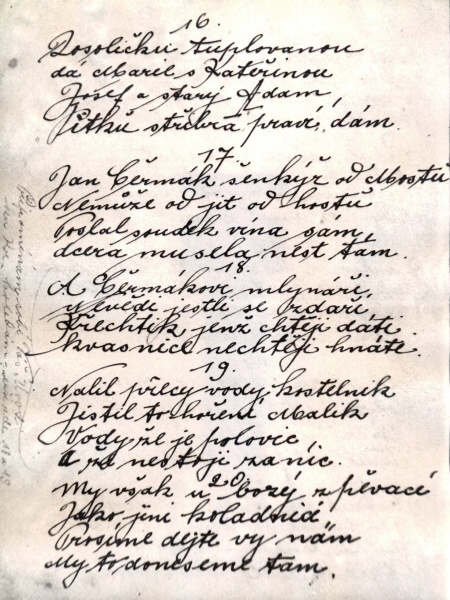 16.
Rosoličku tuplovanou
dá Marie s Kateřinou
Josef a starý Adam,
Pitku stříbra praví, dám.
17
Jan Čermák šenkýř od Mostu
Nemůže od jít od hostů
Poslal soudek vína sám,
dcera musela nést tam.
18.
A Čermákovi mlynáři,
Nevědí jestli se zdaří,
Křechtík jenž chtějí dáti
kvasnice nechtějí hnáti.
19.
Nalil přecy vody kostelník
Zjistil to hoření Malík
Vody že je polovic,
A že nestojí za nic.
20
My však u boží zpěvací
Jako jiní koladníci
Prosíme dejte vy nám
My to doneseme tam.